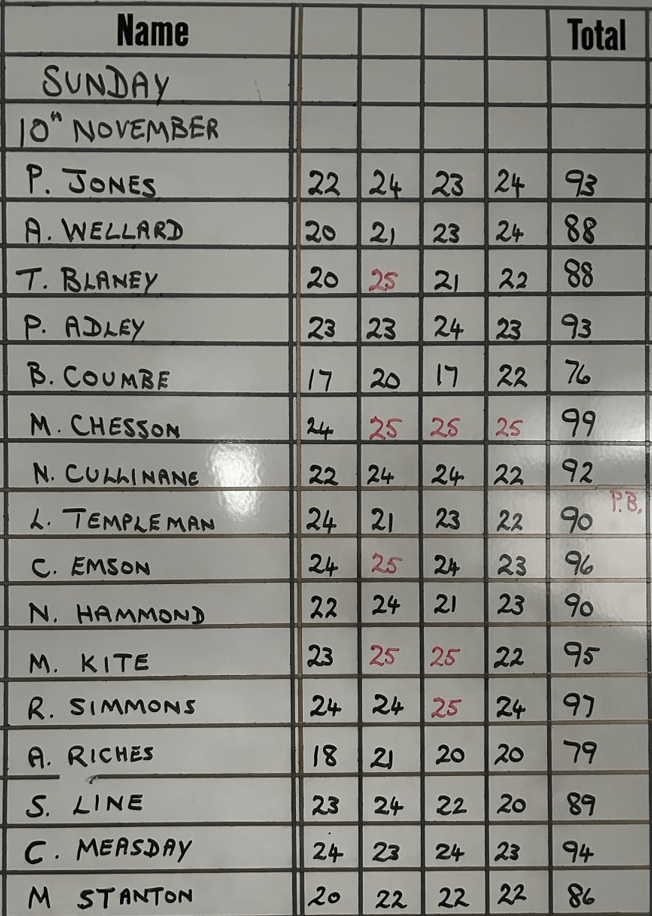 Name Total
SUNDAY
10TH NOVEMBER
P. JONES 22 24 23 24 93
A. WELLARD 20 21 23 24 88
T. BLANEY 20 25 21 22 88
P. ADLEY 23 23 24 23 93
B. COUMBE 17 20 17 22 76
M. CHESSON 24 25 25 25 99
N. CULLINANE 22 24 24 22 92
L. TEMPLEMAN 24 21 23 22 90 P.B.
C. EMSON 24 25 24 23 96
N. HAMMOND 22 24 21 23 90
M. KITE 23 25 25 22 95
R. SIMMONS 24 24 25 24 97
A. RICHES 18 21 20 20 79
S. LINE 23 24 22 20 89
C. MEASDAY 24 23 24 23 94
M STANTON 20 22 22 22 86